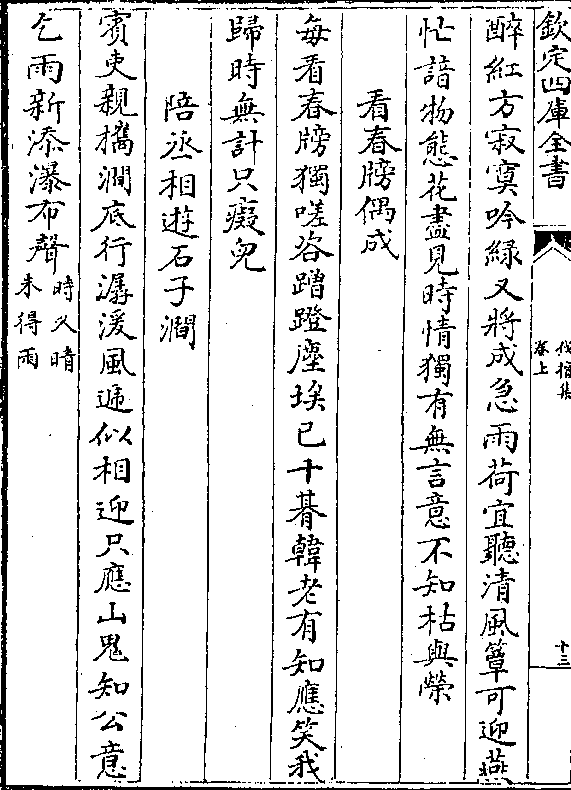 欽定四庫全書
伐檀集
卷上
十三
醉紅方寂寞吟緑又將成急雨荷宜聽清風簟可迎燕
忙諳物態花盡見時情獨有無言意不知枯與榮
看春牓偶成
每看春牓獨嗟咨蹭蹬塵埃已十朞韓老有知應笑我
歸時無計只癡兒
陪丞相遊石子澗
賓吏親攜澗底行潺湲風逓似相迎只應山鬼知公意
乞雨新添瀑布聲時久晴
未得雨